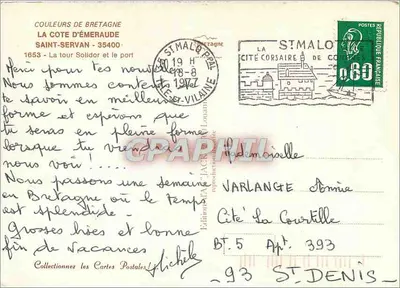 COULEURS DE BRETAGNE
LA COTE D'ÉMERAUDE
SAINT-SERVAN - 35400
1653 - La tour Solidor et le port
ST MALO PPAL
19 H
18-8
1977
ILLE-ET-VILAINE
ST MALO
LA
CITÉ CORSAIRE DE
POSTES
0,80
RÉPUBLIQUE FRANÇAISE
Merci pour tes nouvelles
Nous sommes contents de
te savoir en meilleure
forme et esperons que
tu seras en pleine forme
lorsque tu viendras
nous voir!....
Nous passons une semaine
en Bretagne où le temps
est splendide -
Grosses bises et bonne
fin de vacances
Michèle
Collectionnez les Cartes Postales
CPAPHIL
Mademoiselle
VARLANGE Annie
Cité La Courtille
BT.5 Apt. 393
-93 ST DENIS-